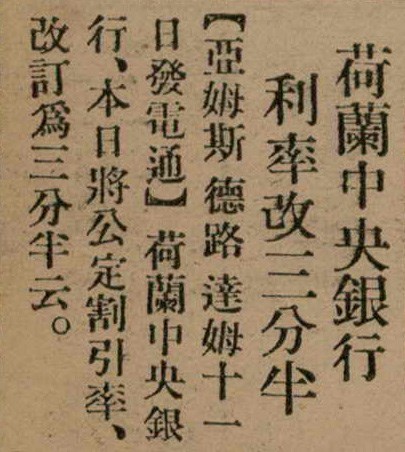 荷蘭中央銀行
利率改三分半
【亞姆斯德路達姆十一
日發電通】荷蘭中央銀
行、本日將公定割引率、
改訂爲三分半云。